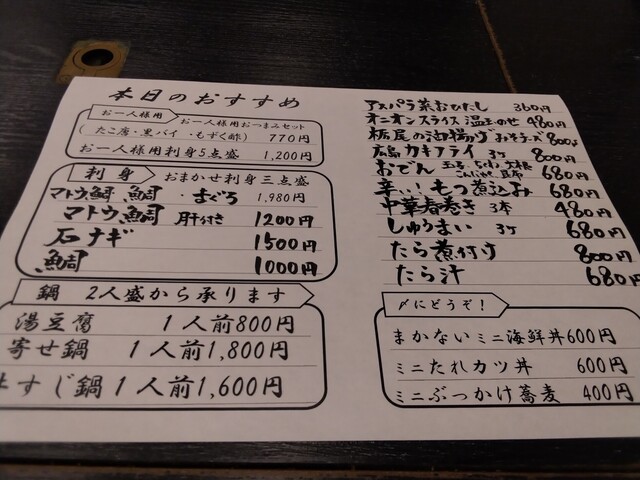 本日のおすすめ
お一人様用
お一人様用おつまみセット
(たこ唐・黒バイ・もずく酢) 770円
お一人様用刺身5点盛 1,200円
刺身 おまかせ刺身三点盛
マトウ鯛 鯛 ・まぐろ 1,980円
マトウ鯛 肝付き 1200円
石ナギ 1500円
鯛 1000円
鍋 2人盛から承ります
湯豆腐 1人前800円
寄せ鍋 1人前1,800円
牛すじ鍋 1人前1,600円
アスパラ菜おひたし 360円
オニオンスライス温玉のせ 480円
栃尾の油揚げ ねぎみそチーズ 800円
広島カキフライ 3ケ 800円
おでん 玉子・ちくわ・大根 こんにゃく・昆布 680円
辛い!もつ煮込み 680円
中華春巻き 3本 480円
しゅうまい 3ケ 680円
たら煮付け 800円
たら汁 680円
〆にどうぞ!
まかないミニ海鮮丼600円
ミニたれカツ丼 600円
ミニぶっかけ蕎麦 400円